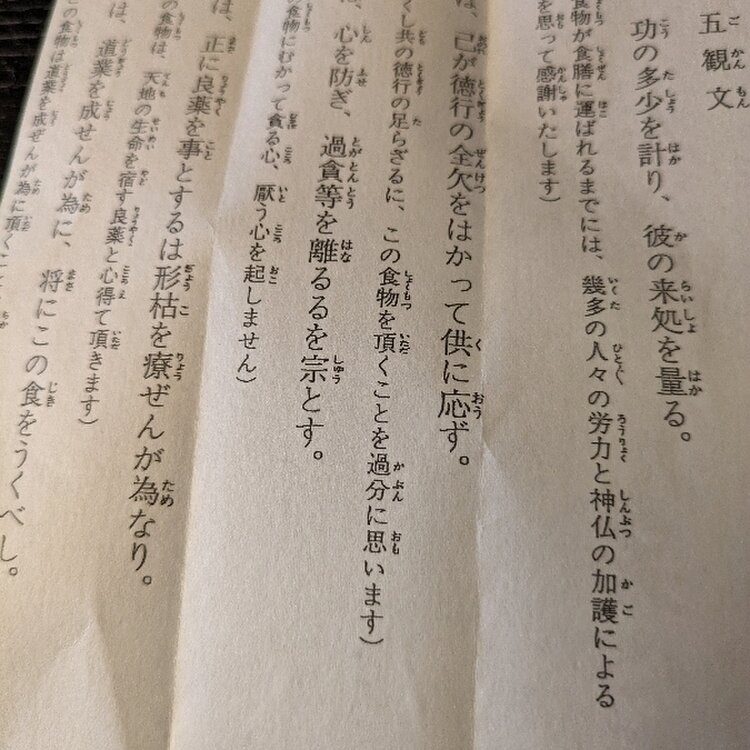 五観文
功の多少を計り、彼の来処を量る。
食物が食膳に運ばれるまでには、幾多の人々の労力と神仏の加護による
を思って感謝いたします)
は、己が徳行の全欠をはかって供に応ず。
くし共の徳行の足らざるに、この食物を頂くことを過分に思います)
は、心を防ぎ、過貪等を離るるを宗とす。
の食物にむかって貪る心、厭う心を起しません)
は、正に良薬を事とするは形枯を療ぜんが為なり。
の食物は、天地の生命を宿す良薬と心得て頂きます)
は、道業を成ぜんが為に、将にこの食をうくべし。
の食物は道業を成ぜんが為に頂くこと